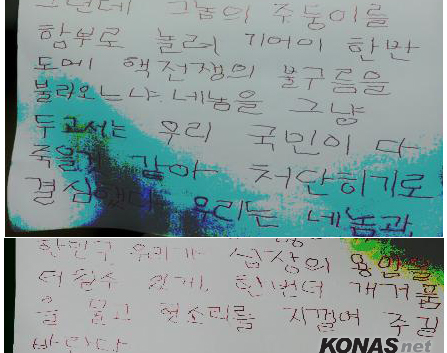 그런데 그놈의 주둥이를
함부로 놀려 기어이 한반
도에 핵전쟁의 불구름을
불러오느냐. 네놈을 그냥
두고서는 우리 국민이 다
죽을것 같아 처단하기로
결심했다 우리는 네놈과
한민국 우리가 심장의
더 할수 있게, 한번더 개거품
을 물고 헛소리를 지껄여 주길
바란다
KONAS.net